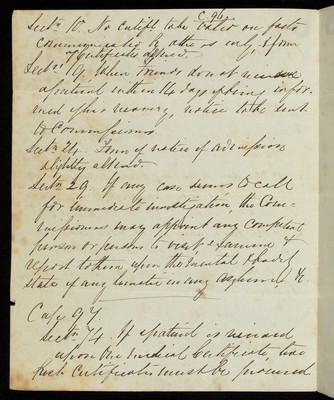 C. 96.
Sectn 10. No certift to be valid on facts
communicated by others only, & form
of Certificate altered.
Sectn 19. When friends do not remove
a patient within 14 days of being infor-
med of his recovery, notice to be sent
to Commissions.
Sectn 24. Form of notice of admission
slightly altered.
Sectn 29. If any case seems to call
for immediate investigation, the Com-
missioners may appoint any competent
person or persons to visit & examine &
report to them upon the mental & bodily
state of any lunatic in any asylum, &c
Cap. 97.
Sectn 74. If a patient is received
upon one medical Certificate, two
such Certificates must be procured